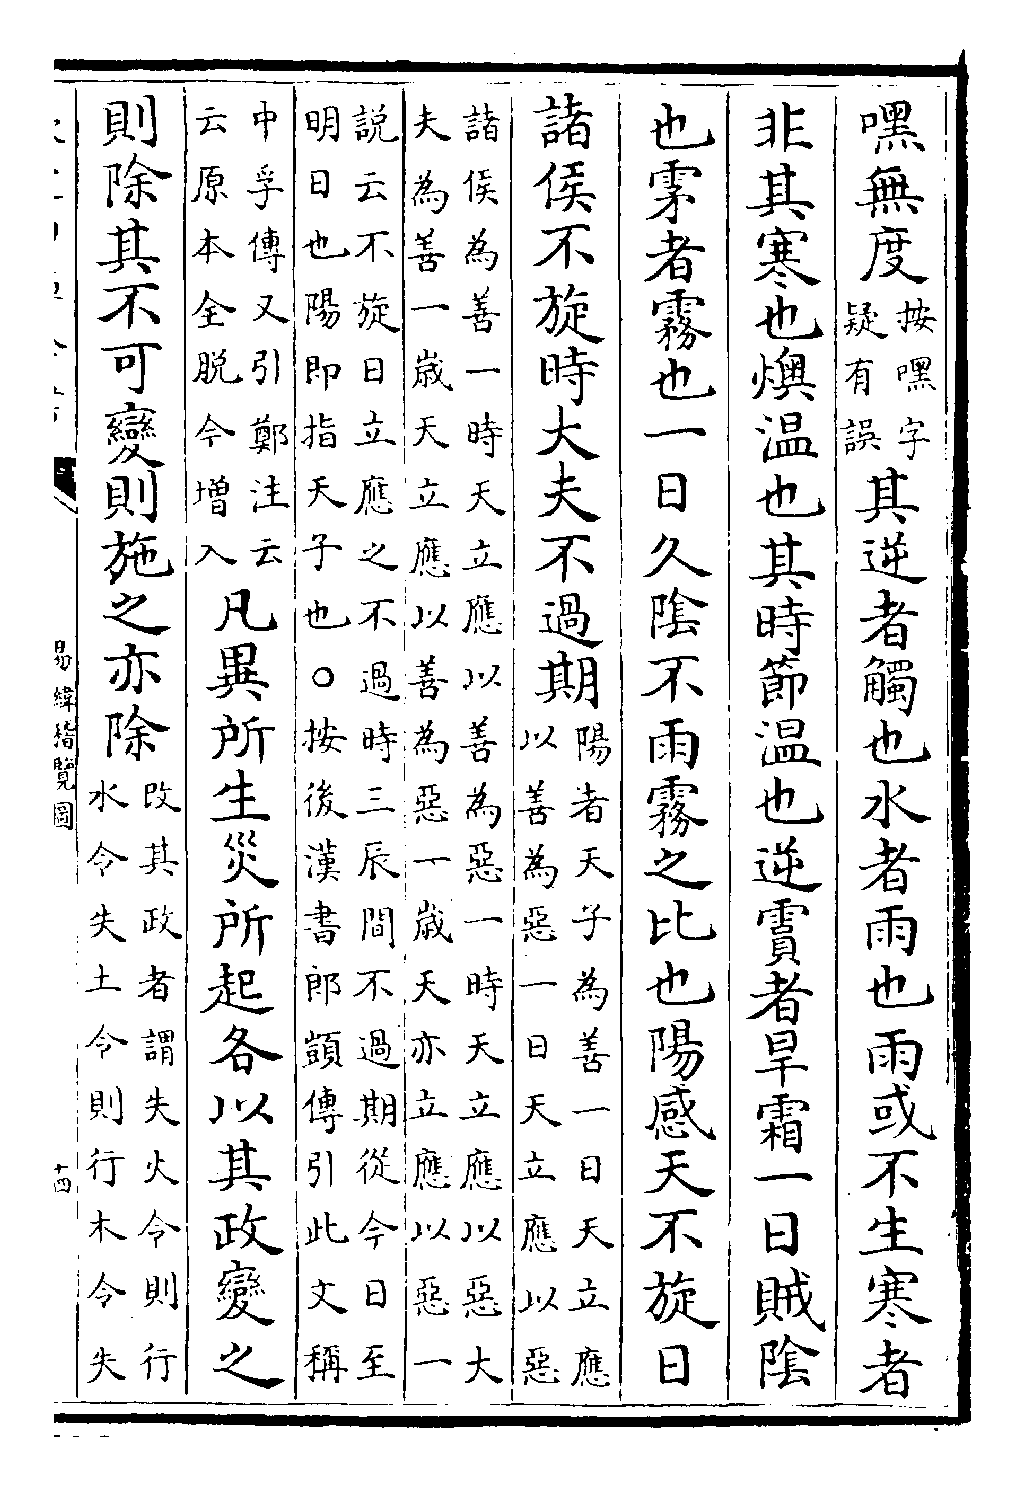 嘿無度按嘿字疑有誤其逆者觸也水者雨也雨或不生寒者
非其寒也燠温也其時節温也逆霣者旱霜一日賊陰
也雺者霧也一日久陰不雨霧之比也陽感天不旋日
諸侯不旋時大夫不過期陽者天子為善一日天立應以善為惡一日天立應以惡
諸侯為善一時天立應以善為惡一時天立應以惡大夫為善一歲天立應以善為惡一歲天亦立應以惡一
説云不旋日立應之不過時三辰間不過期從今日至明日也陽即指天子也○按後漢書郎顗傳引此文稱
中孚傳又引鄭注云云原本全脱今增入凡異所生災所起各以其政變之
則除其不可變則施之亦除改其政者謂失火令則行水令失土令則行木令失
易緯稽覽圖
十四